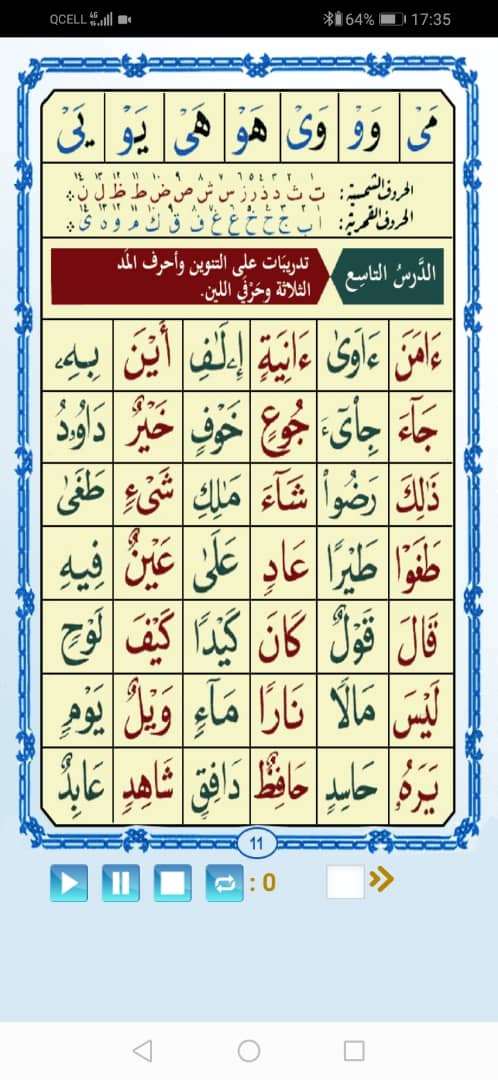 QCELL 4G 64% 17:35
مَىْ وَوْ وَىْ هَوْ هَىْ يَوْ يَىْ
الحروف الشمسية: ت ث د ذ ر ز س ش ص ض ط ظ ل ن
الحروف القمرية: ا ب ج ح خ ع غ ف ق ك م و ه ى
الدَّرسُ التاسِع
تدريبَات على التنوين وأحرف المَد
الثلاثة وحَرْفَي اللين.
ءَامَنَ ءَاوَىٰ ءَانِيَةٍ إِۦلَٰفِ أَيْنَ بِهِۦ
جَآءَ جِاْىٓءَ جُوعٍ خَوْفٍ خَيْرٌ دَاوُۥدُ
ذَٰلِكَ رَضُواْ شَآءَ مَٰلِكِ شَىْءٍ طَغَىٰ
طَغَوْا طَيْرًا عَادٍ عَلَىٰ عَيْنٌ فِيهِ
قَالَ قَوْلٌ كَانَ كَيْدًا كَيْفَ لَوْحٍ
لَيْسَ مَالًا نَارًا مَآءٍ وَيْلٌ يَوْمٍ
يَرَهُۥ حَاسِدٍ حَافِظٌ دَافِقٍ شَاهِدٍ عَابِدٌ
11
: 0